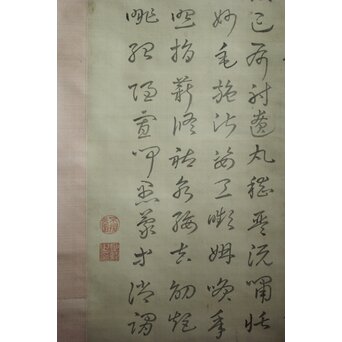 亡布射遼丸嵇琴阮嘯恬
妙毛施淑姿工顰妍笑年
照指薪修祜永綏吉劭矩
眺孤陋寡聞愚蒙等誚謂